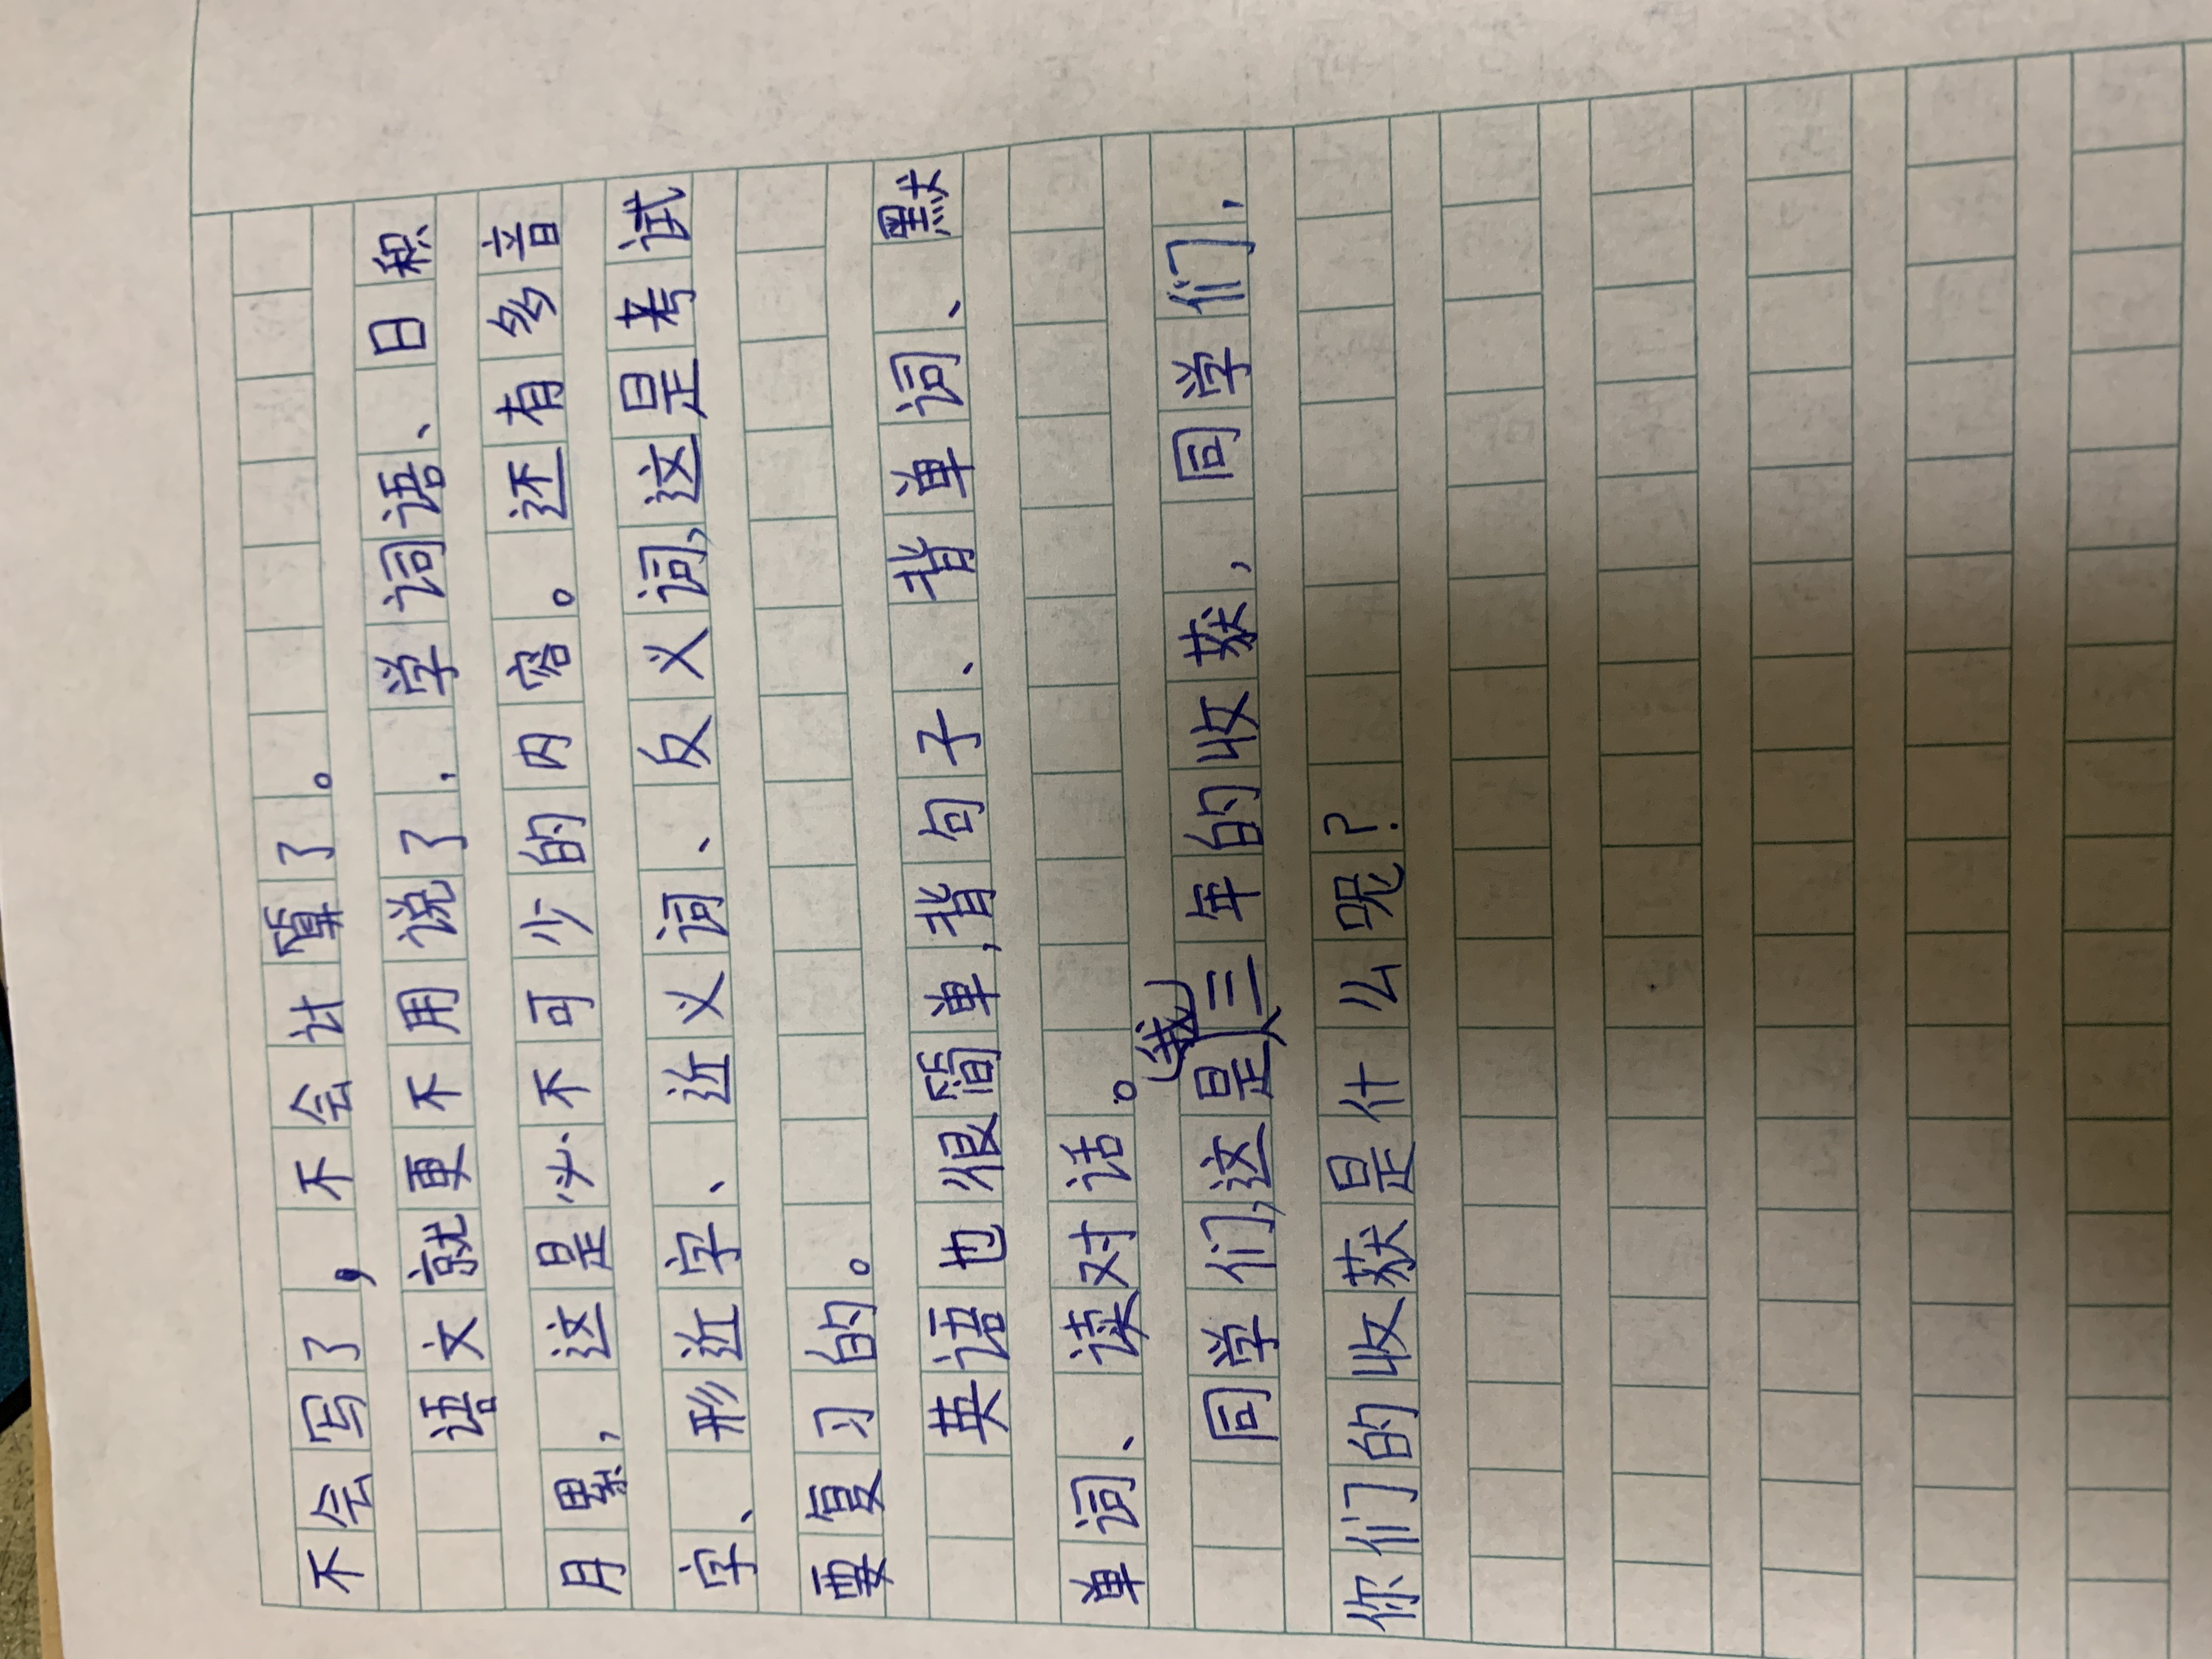 不会写了，不会计算了。
语文就更不用说了，学词语、日积
月累，这是必不可少的内容。还有多音
字、形近字、近义词、反义词，这是考试
要复习的。
英语也很简单，背句子、背单词、默
单词、读对话。
同学们，这是我三年的收获，同学们，
你们的收获是什么呢？